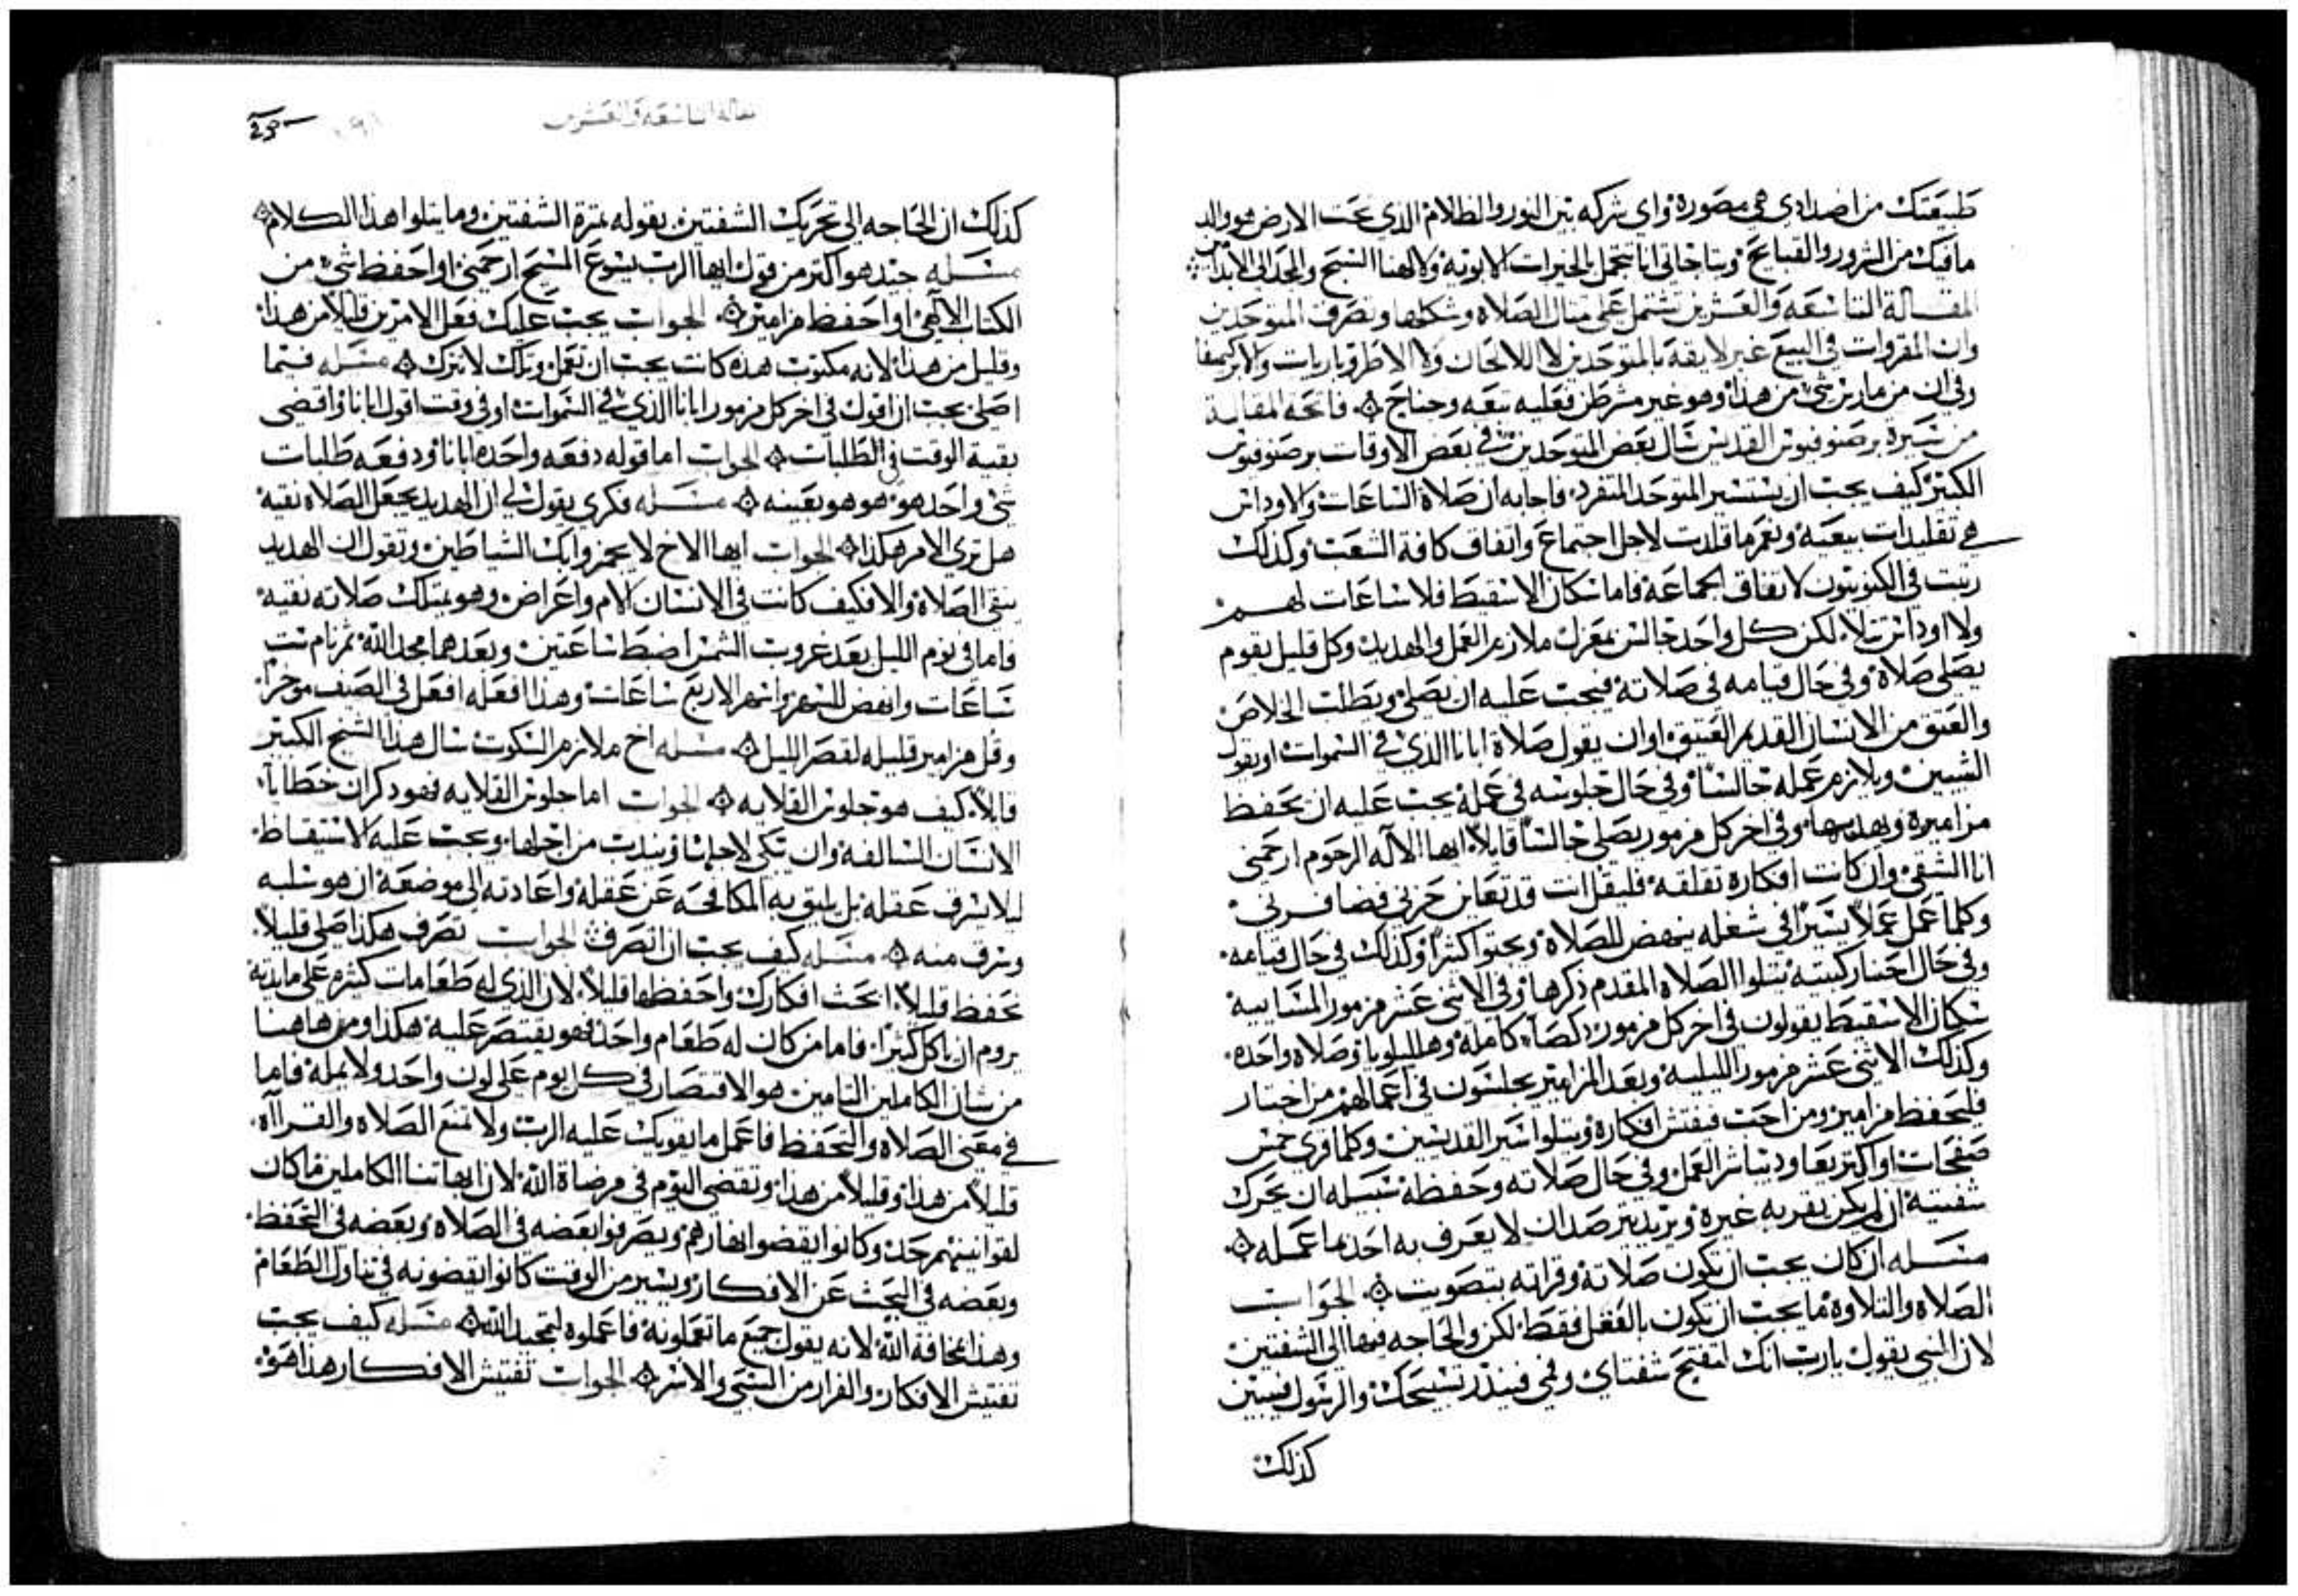 طبيعتك من اضدادي هي مصوره واي شركه بين النور والظلام الذي تحت الارض هو والد
مافيك من الشرور والقبايح وبتاجاتي انا تتجمل بالخيرات الابويه ولالهنا السبح والمجد الى الابد امين
المقالة التاسعه والعشرين تشتمل على مثال الصلاه وشكلها وتصرف المتوحدين
وان المقروات في البيع غير لايقه بالمتوحدين لا اللالحان ولا الاطروباريات ولا
وفي ان من مارس شي من هذا وهو غير مشرطن فعليه تبعه وجناح فاتحة المقالة
من سيرة برصنوفيوس القديس سال بعض المتوحدين في بعض الاوقات برصنوفيوس
الكبير كيف يجب ان يستسير المتوحد المنفرد فاجابه ان صلاة الساعات والاوداس
هي تقليدات بيعيه ونعم ما قلدت لاجل اجتماع واتفاق كافة الشعب وكذلك
رتبت في الكنوبيون لاتفاق الجماعه فاما سكان الاسقيط فلا ساعات لهم
ولا اوداس تتلا لكن كل واحد جالس بمعزل ملازم العمل والهديد وكل قليل يقوم
يصلي صلاة وفي حال قيامه في صلاته فيجب عليه ان يصلي ويطلب الخلاص
والعتق من الانسان القديم العتيق اوان يقول صلاة ابانا الذي في السموات او يقول
الشيين ويلازم عمله جالسا وفي حال جلوسه في عمله يجب عليه ان يحفظ
مزاميره ويهدس بها وفي اخر كل مزمور يصلي جالسا قايلا ايها الاله الرحوم ارحمني
انا الشقي وان كانت افكاره تقلقه فليقل انت قد تعاين حزني فضافرني
وكلما عمل عملا يسيرا في شغله ينهض للصلاه ويجثوا كثيرا وكذلك في حال قيامه
وفي حال احنا ركبتيه يتلوا الصلاه المقدم ذكرها وفي الاثني عشر مزمور المسايية
سكان الاسقيط يقولون في اخر كل مزمور ذكصا كامله وهلليلويا وصلاه واحده
وكذلك الاثني عشر مزمور الليليه وبعد المزامير يجلسون في اعمالهم من اختار
فليحفظ مزامير ومن احب فيفتش افكاره ويتلوا سير القديسين وكلما قري خمس
صفحات او اكثر يعاود يباشر العمل وفي حال صلاته وحفظه سبيله ان يحرك
شفتيه ان لم يكن بقربه غيره ويريد يترصد ان لا يعرف به احد بما عمله
مسله ان كان يجب ان تكون صلاته وقراته بتصويت الجواب
الصلاه والتلاوه ما يجب ان تكون بالعقل فقط لكن والحاجه فيها الى الشفتين
لان النبي يقول يارب انك لتفتح شفتاي وفمي فينذر تسبيحك والرسول فيبين
كذلك
المقالة التاسعه والعشرين
كذلك ان الحاجه الى تحريك الشفتين بقوله ثمرة الشفتين وما يتلوا هذا الكلام
مسله جيد هو اكثر من قولي ايها الرب يسوع المسيح ارحمني او احفظ شي من
الكتاب الالهي او احفظ مزامير الجواب يجب عليك فعل الامرين قليلا من هذا
وقليل من هذا لانه مكتوب هذه كانت يجب ان تعمل وتلك لا تترك مسله فيما
اصلي يجب ان اقول في اخر كل مزمور ابانا الذي في السموات او في وقت اقول ابانا واقضي
بقية الوقت في الطلبات الجواب اما قوله دفعه واحده ابانا ودفعه طلبات
شي واحد هو هو هو بعينه مسله فكري يقول لي ان الهديد يجعل الصلاه نقيه
هل تري الامر هكذا الجواب ايها الاخ لا تهزوا بك الشياطين وتقول ان الهديد
ينقي الصلاه والا فكيف كانت في الانسان الام واعراض وهو يمتلك صلاته نقيه
فاما في نوم الليل بعد غروب الشمس اضبط ساعتين وبعدهما مجد الله ثم نام ست
ساعات وانهض للسهر واسهر الاربع ساعات وهذا افعله افعل في الصيف موخرا
وقل مزامير قليله لقصر الليل مسله اخ ملازم السكوت سال هذا الشيخ الكبير
قايلا كيف هو جلوس القلايه الجواب اما جلوس القلايه فهو ذكران خطايا
الانسان السالفه وان تبكي لاجلها ويندب من اجلها ويجب عليه الاستيقاظ
ليلا يسرق عقله بل يليق به المكافحه عن عقله واعادته الى موضعه ان هو سلبه
وسرق منه مسله كيف يجب ان اتصرف الجواب تصرف هكذا صلي قليلا
تحفظ قليلا ابحث افكارك واحفظها قليلا لان الذي له طعامات كثيره على مايدته
يروم ان ياكل كثيرا فاما من كان له طعام واحد فهو يقتصر عليه هكذا ومن هاهنا
من شان الكاملين التامين هو الاقتصار في كل يوم على لون واحد ولا يمله فاما
في معنى الصلاه والتحفظ فاعمل ما يقويك عليه الرب ولا تمنع الصلاه والقراه
قليلا من هذا وقليلا من هذا وتقضي اليوم في مرضاة الله لان ابهاتنا الكاملين ما كان
لقوانينهم حد وكانوا يقضوا نهارهم ويصرفوا بعضه في الصلاه وبعضه في التحفظ
وبعضه في البحث عن الافكار ويسير من الوقت كانوا يقضونه في تناول الطعام
وهذا بمخافة الله لانه يقول جميع ما تعملونه فاعملوه لتمجيد الله مسله كيف يجب
تفتيش الافكار والفرار من السبي والاسر الجواب تفتيش الافكار هذا هو